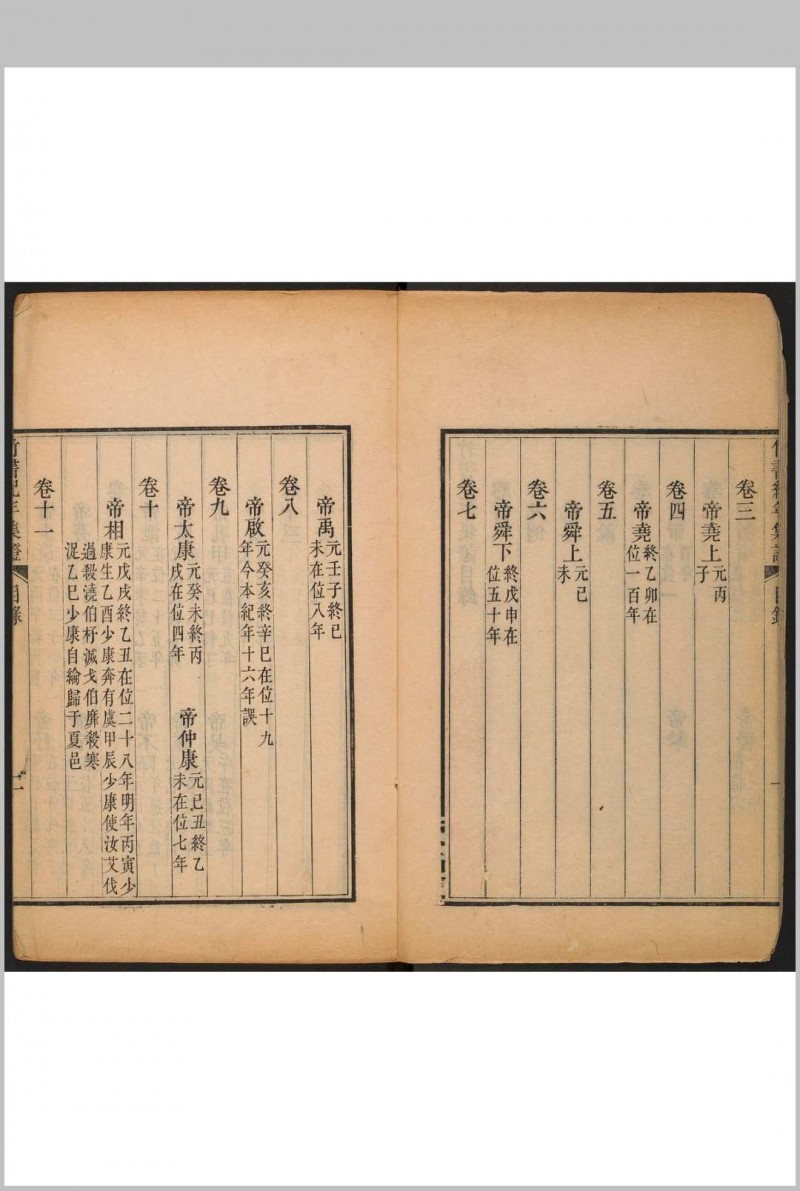 竹書紀年集證 目錄 一
卷三
帝堯上 元丙子
卷四
帝堯 終乙卯在位一百年
卷五
帝舜上 元己未
卷六
帝舜下 終戊申在位五十年
卷七
帝禹 元壬子終己未在位八年
卷八
帝啟 元癸亥終辛巳在位十九年今本紀年十六年誤
卷九
帝太康 元癸未終丙戌在位四年 帝仲康 元己丑終乙未在位七年
卷十
帝相 元戊戌終乙丑在位二十八年明年丙寅少康生乙酉少康奔有虞甲辰少康使汝艾伐
過殺澆伯杼滅戈伯靡殺寒浞乙巳少康自綸歸于夏邑
卷十一
竹書紀年集證 目錄